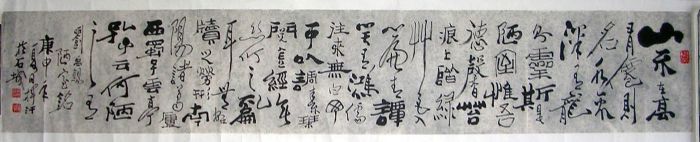 山不在高
有僊則
名水不在
深有龍
則靈斯是
陋室惟吾
德馨苔
痕上階綠
艸色入
簾青譚
笑有鴻儒
往來無白丁
可以調素琴
閱金經無
絲竹之亂
耳無案
牘之勞形南
陽諸葛廬
西蜀子雲亭
孔子云何陋
之有
劉禹錫
陋室銘
庚申年
夏月
於石城